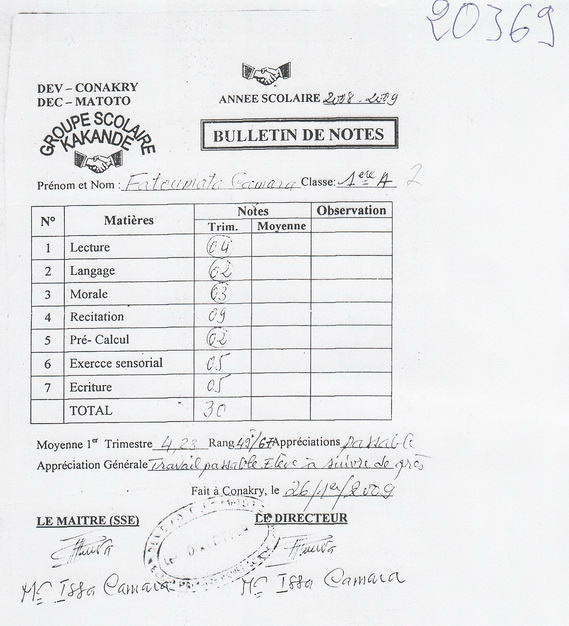 20369
DEV – CONAKRY
DEC – MATOTO
ANNEE SCOLAIRE 2008-2009
GROUPE SCOLAIRE
KAKANDE
BULLETIN DE NOTES
Prénom et Nom : Fatoumata Camara Classe: 1ere A 2
N° Matières Notes Observation
Trim. Moyenne
1 Lecture 04
2 Langage 02
3 Morale 03
4 Recitation 09
5 Pré- Calcul 02
6 Exercce sensorial 05
7 Ecriture 05
TOTAL 30
Moyenne 1er Trimestre 4,28 Rang 49/67 Appréciations passable
Appréciation Générale Travail passable Eleve à suivre de près
Fait à Conakry, le 26/1er/2009
LE MAITRE (SSE) LE DIRECTEUR
Mc Issa Camara Mc Issa Camara